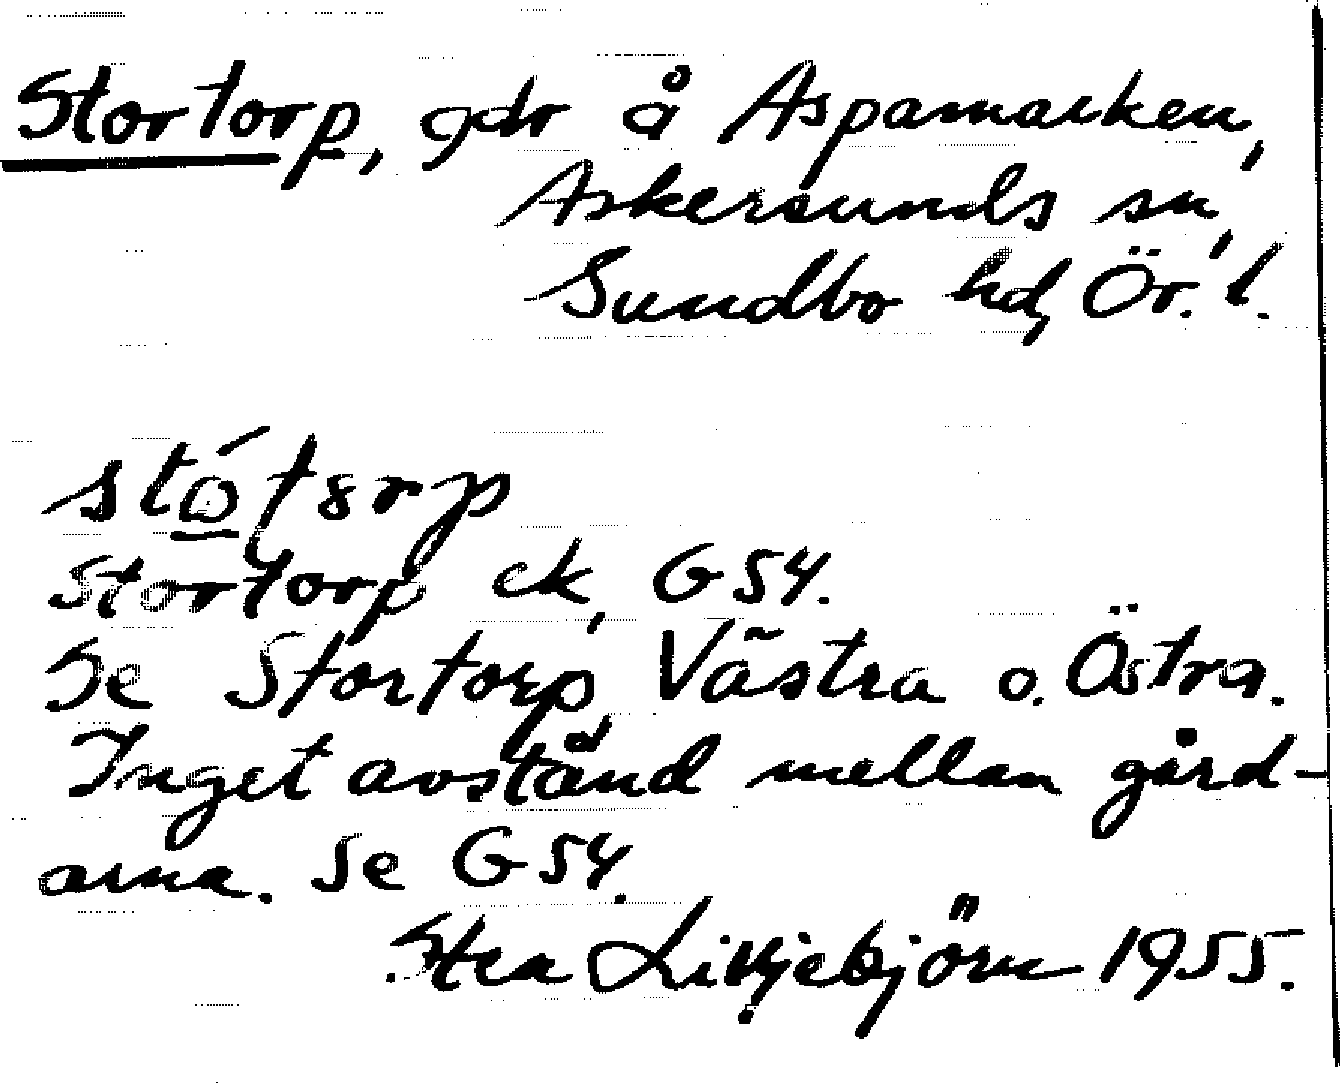 Stortorp, gdr å Aspamarken,
Askersunds sn,
Sundbo hd, Ör. l.
stó̲tɜrp
Stortorp ek, G54.
Se Stortorp, Västra o. Östra.
Inget avstånd mellan gård-
arna. Se G54.
Liljebjörn 1955.